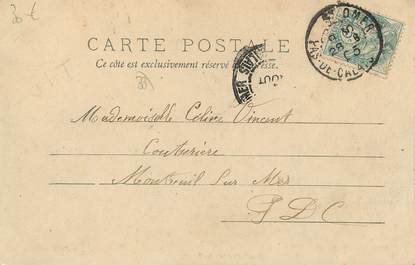 30 €
CARTE POSTALE
Ce côté est exclusivement réservé à l'adresse.
ST OMER
PAS-DE-CALAIS
Mademoiselle Celine Vincent
Couturière
Montreuil sur Mer
P D C